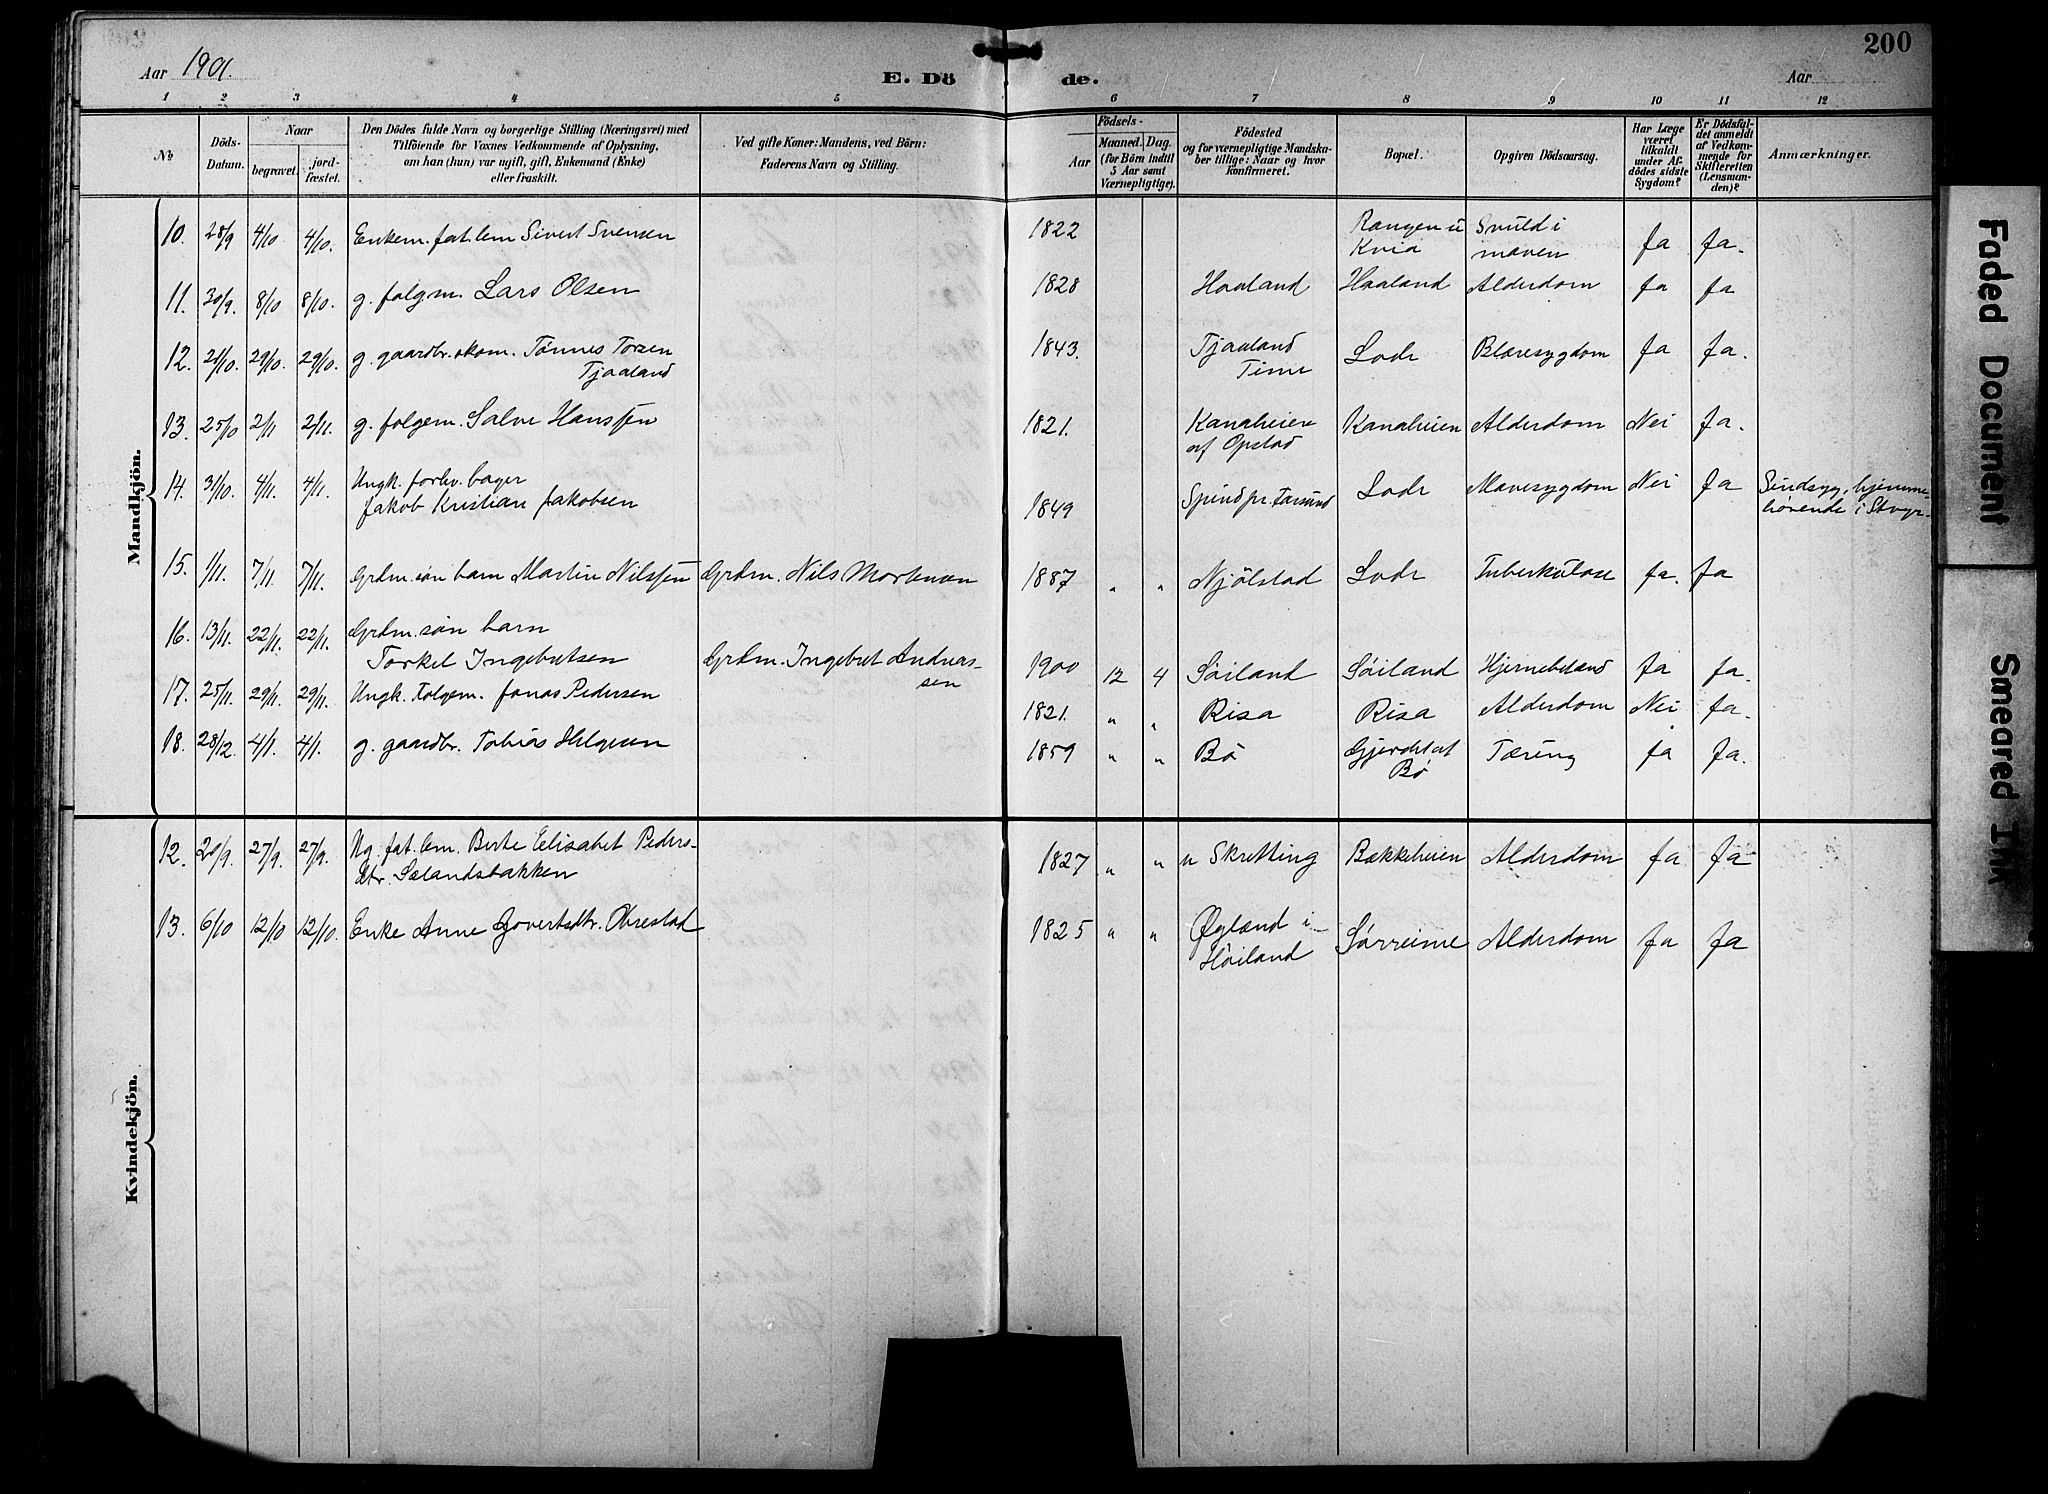 Aar 1901.
E. Dö de.
Aar
200
1 2 3 4 5 6 7 8 9 10 11 12
No
Döds-
Datum.
Naar
begravet.
jord-
fæstet.
Den Dödes fulde Navn og borgerlige Stilling (Næringsvei) med
Tilföiende for Voxnes Vedkommende af Oplysning,
om han (hun) var ugift, gift, Enkemand (Enke)
eller fraskilt.
Ved gifte Koner: Mandens, ved Börn:
Faderens Navn og Stilling.
Födsels-
Aar
Maaned. Dag.
(for Börn indtil
5 Aar samt
Værnepligtige).
Födested
og for værnepligtige Mandska-
ber tillige: Naar og hvor
konfirmeret.
Bopæl.
Opgiven Dödsaarsag.
Har Læge
været
tilkaldt
under Af-
dödes sidste
Sygdom?
Er Dödsfal-
det anmeldt
af Vedkom-
mende for
Skifteretten
(Lensman-
den)?
Anmærkninger.
Mandkjön.
10. 28/9 4/10 4/10. Enkem. fat. lem Sivert Svensen 1822 Rangen u Kvia Svuld i maven Ja Ja.
11. 30/9. 8/10 8/10. g. folgm. Lars Olsen 1828 Haaland Haaland Alderdom Ja Ja
12. 21/10. 29/10. 29/10. g. gaardbr. skom. Tønnes Torsen
Tjaaland 1843. Tjaaland Time Lode Blæresygdom Ja Ja.
13. 25/10 2/11 2/11. g. folgem. Salve Hanssen 1821. Kanaheien af Opstad Kanaheien Alderdom Nei Ja.
14. 31/10. 4/11. 4/11. Ungk. forhv. bager
Jakob Kristian Jakobsen 1849 Spind pr. Farsund Lode Mavesygdom Nei Ja Sindsyg, hjemme-
hörende i Stvgr.
15. 1/11. 7/11. 7/11. Grdm. søn barn Martin Nilssen Grdm. Nils Mortensen 1887 " " Njölstad Lode Tuberkulose Ja. Ja
16. 13/11. 22/11. 22/11. Grdm. søn barn
Torkel Ingebretsen Grdm. Ingebret Andreas-
sen 1900 12 4 Søiland Søiland Hjernebetænd Ja Ja.
17. 25/11. 29/11. 29/11. Ungk. Folgem. Jonas Pedersen 1821. " " Risa Risa Alderdom Nei Ja.
18. 28/12. 4/1. 4/1. g. gaardbr. Tobias Helgesen 1859 " " Bö Gjerdet at Bø Tæring Ja Ja.
Kvindekjön.
12. 20/9. 27/9. 27/9. Ug. fat. lem. Berte Elisabet Peders-
dtr. Sælandsbakken 1827 " " u Skretting Bækkeheien Alderdom Ja Ja
13. 6/10 12/10 12/10. Enke Anne Govertsdtr. Obrestad 1825 " " Øglænd i Høiland Sørreime Alderdom Ja Ja
Faded Document
Smeared Ink